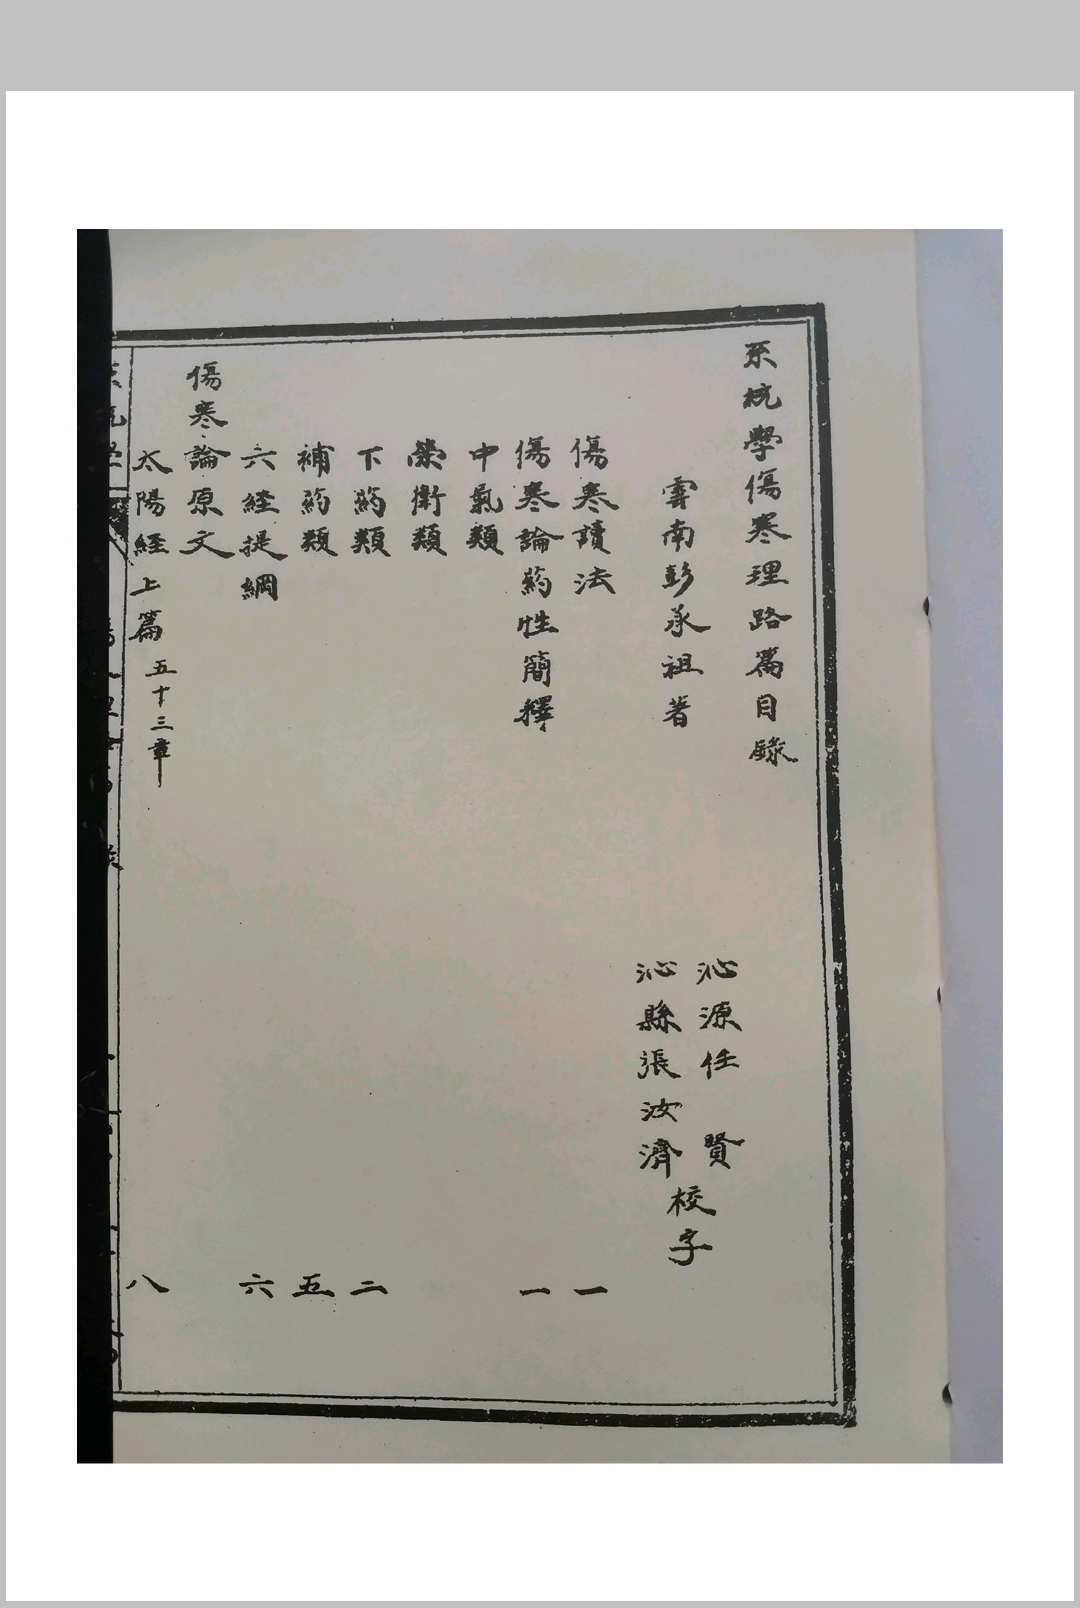 系統學傷寒理路篇目錄
沁源任 賢
雲南彭承祖著
校字
沁縣張汝濟
傷寒讀法 一
傷寒論药性簡釋 一
中氣類
榮衛類
下药類 二
補药類 五
六經提綱 六
傷寒論原文
太陽經上篇 五十三章 八